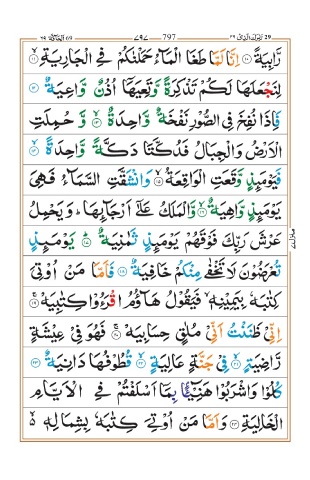 تبٰرك الذى ٢٩ ٧٩٧ 797 الحآقة ٦٩
رَّابِيَةً ﴿١٠﴾ اِنَّا لَمَّا طَغَا الْمَآءُ حَمَلْنٰكُمْ فِى الْجَارِيَةِ ﴿١١﴾
لِنَجْعَلَهَا لَكُمْ تَذْكِرَةً وَّتَعِيَهَآ اُذُنٌ وَّاعِيَةٌ ﴿١٢﴾
فَاِذَا نُفِخَ فِى الصُّوْرِ نَفْخَةٌ وَّاحِدَةٌ ﴿١٣﴾ وَّحُمِلَتِ
الْاَرْضُ وَالْجِبَالُ فَدُكَّتَا دَكَّةً وَّاحِدَةً ﴿١٤﴾
فَيَوْمَئِذٍ وَّقَعَتِ الْوَاقِعَةُ ﴿١٥﴾ وَانْشَقَّتِ السَّمَآءُ فَهِىَ
يَوْمَئِذٍ وَّاهِيَةٌ ﴿١٦﴾ وَّالْمَلَكُ عَلٰٓى اَرْجَآئِهَا ؕ وَيَحْمِلُ
عَرْشَ رَبِّكَ فَوْقَهُمْ يَوْمَئِذٍ ثَمٰنِيَةٌ ﴿١٧﴾ يَوْمَئِذٍ
تُعْرَضُوْنَ لَا تَخْفٰى مِنْكُمْ خَافِيَةٌ ﴿١٨﴾ فَاَمَّا مَنْ اُوْتِىَ
كِتٰبَهٗ بِيَمِيْنِهٖ فَيَقُوْلُ هَآؤُمُ اقْرَءُوْا كِتٰبِيَهْ ﴿١٩﴾
اِنِّىْ ظَنَنْتُ اَنِّىْ مُلٰقٍ حِسَابِيَهْ ﴿٢٠﴾ فَهُوَ فِىْ عِيْشَةٍ
رَّاضِيَةٍ ﴿٢١﴾ فِىْ جَنَّةٍ عَالِيَةٍ ﴿٢٢﴾ قُطُوْفُهَا دَانِيَةٌ ﴿٢٣﴾
كُلُوْا وَاشْرَبُوْا هَنِيْٓئًۢا بِمَآ اَسْلَفْتُمْ فِى الْاَيَّامِ
الْخَالِيَةِ ﴿٢٤﴾ وَاَمَّا مَنْ اُوْتِىَ كِتٰبَهٗ بِشِمَالِهٖ ۙ